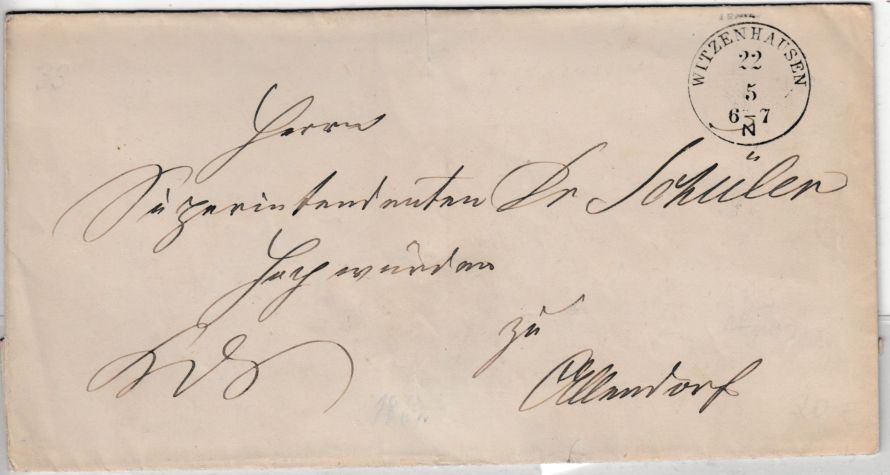 WITZENHAUSEN
22
5
6-7
N
Herrn
Superintendenten Dr Schüler
Hochwürden
zu
Allendorf